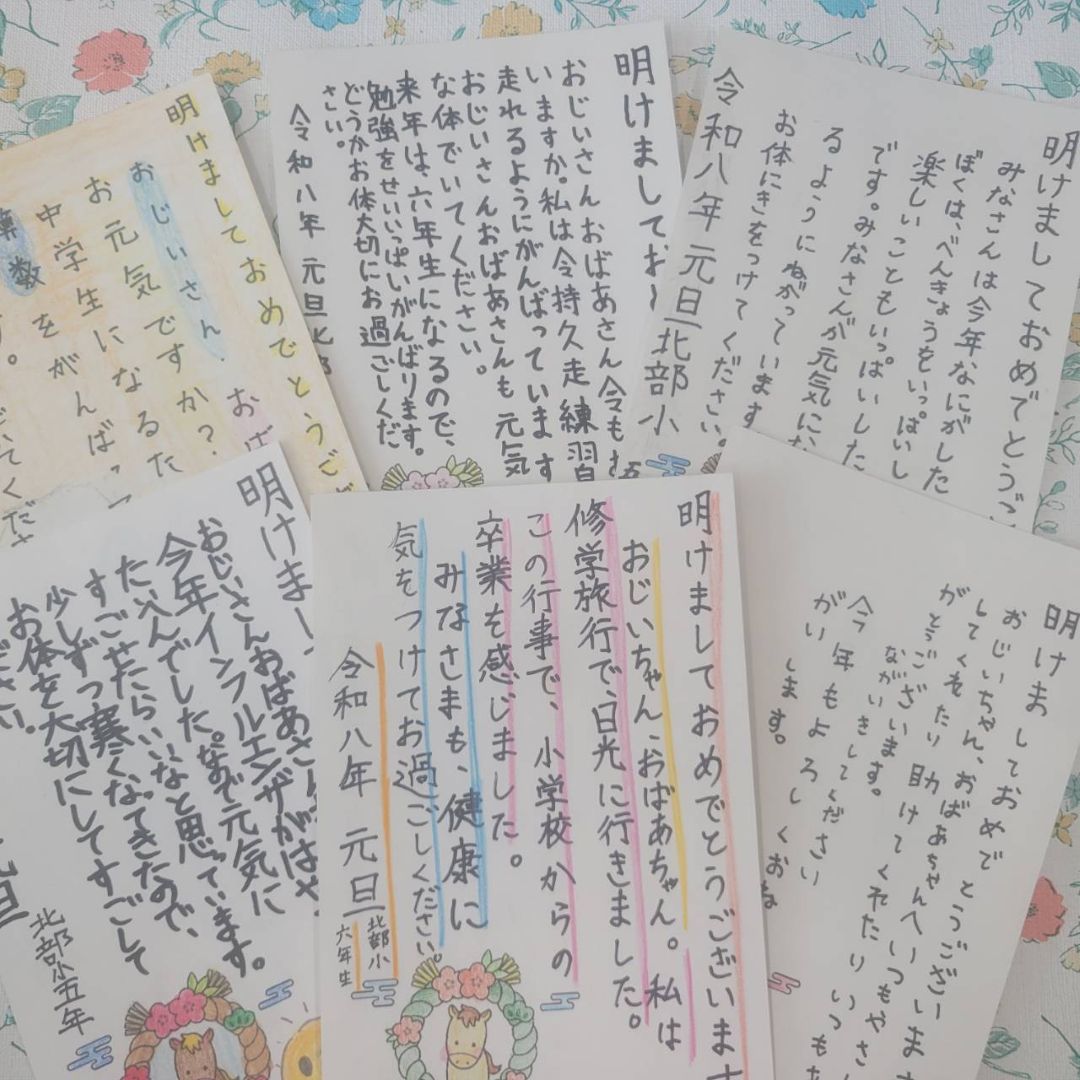 明けましておめでとうご
おじいさん おば
お元気ですか？
中学生になるた
算数をがんば
明けましてお
おじいさんおばあさん今も
いますか。私は今持久走練習
走れるようにがんばっています
おじいさんおばあさんも元気
な体でいてください。
来年は、六年生になるので、
勉強をせいいっぱいがんばります。
どうかお体大切にお過ごしくだ
さい。
令和八年 元旦 北部
明けましておめでとうご
みなさんは今年なにがした
ぼくは、べんきょうをいっぱいし
楽しいこともいっぱいした
です。みなさんが元気にな
るようにねがっています
お体にきをつけてください。
令和八年 元旦 北部小
明けま
おじいさんおばあさん
今年インフルエンザがはや
たいへんでした。なので元気に
すごせたらいいなと思っています。
少しずつ寒くなってきたので、
お体を大切にしてすごして
ださい。
元旦
北部小五年
明けましておめでとうございます
おじいちゃん、おばあちゃん。私は
修学旅行で、日光に行きました。
この行事で、小学校からの
卒業を感じました。
みなさまも、健康に
気をつけてお過ごしください。
令和八年 元旦
北部小
六年生
明けましておめでとうございま
おじいちゃん、おばあちゃんへいつもやさ
してくれたり助けてくれたりいつも
がとうございます。
ながいきしてください
今年もよろしくおね
がいします。